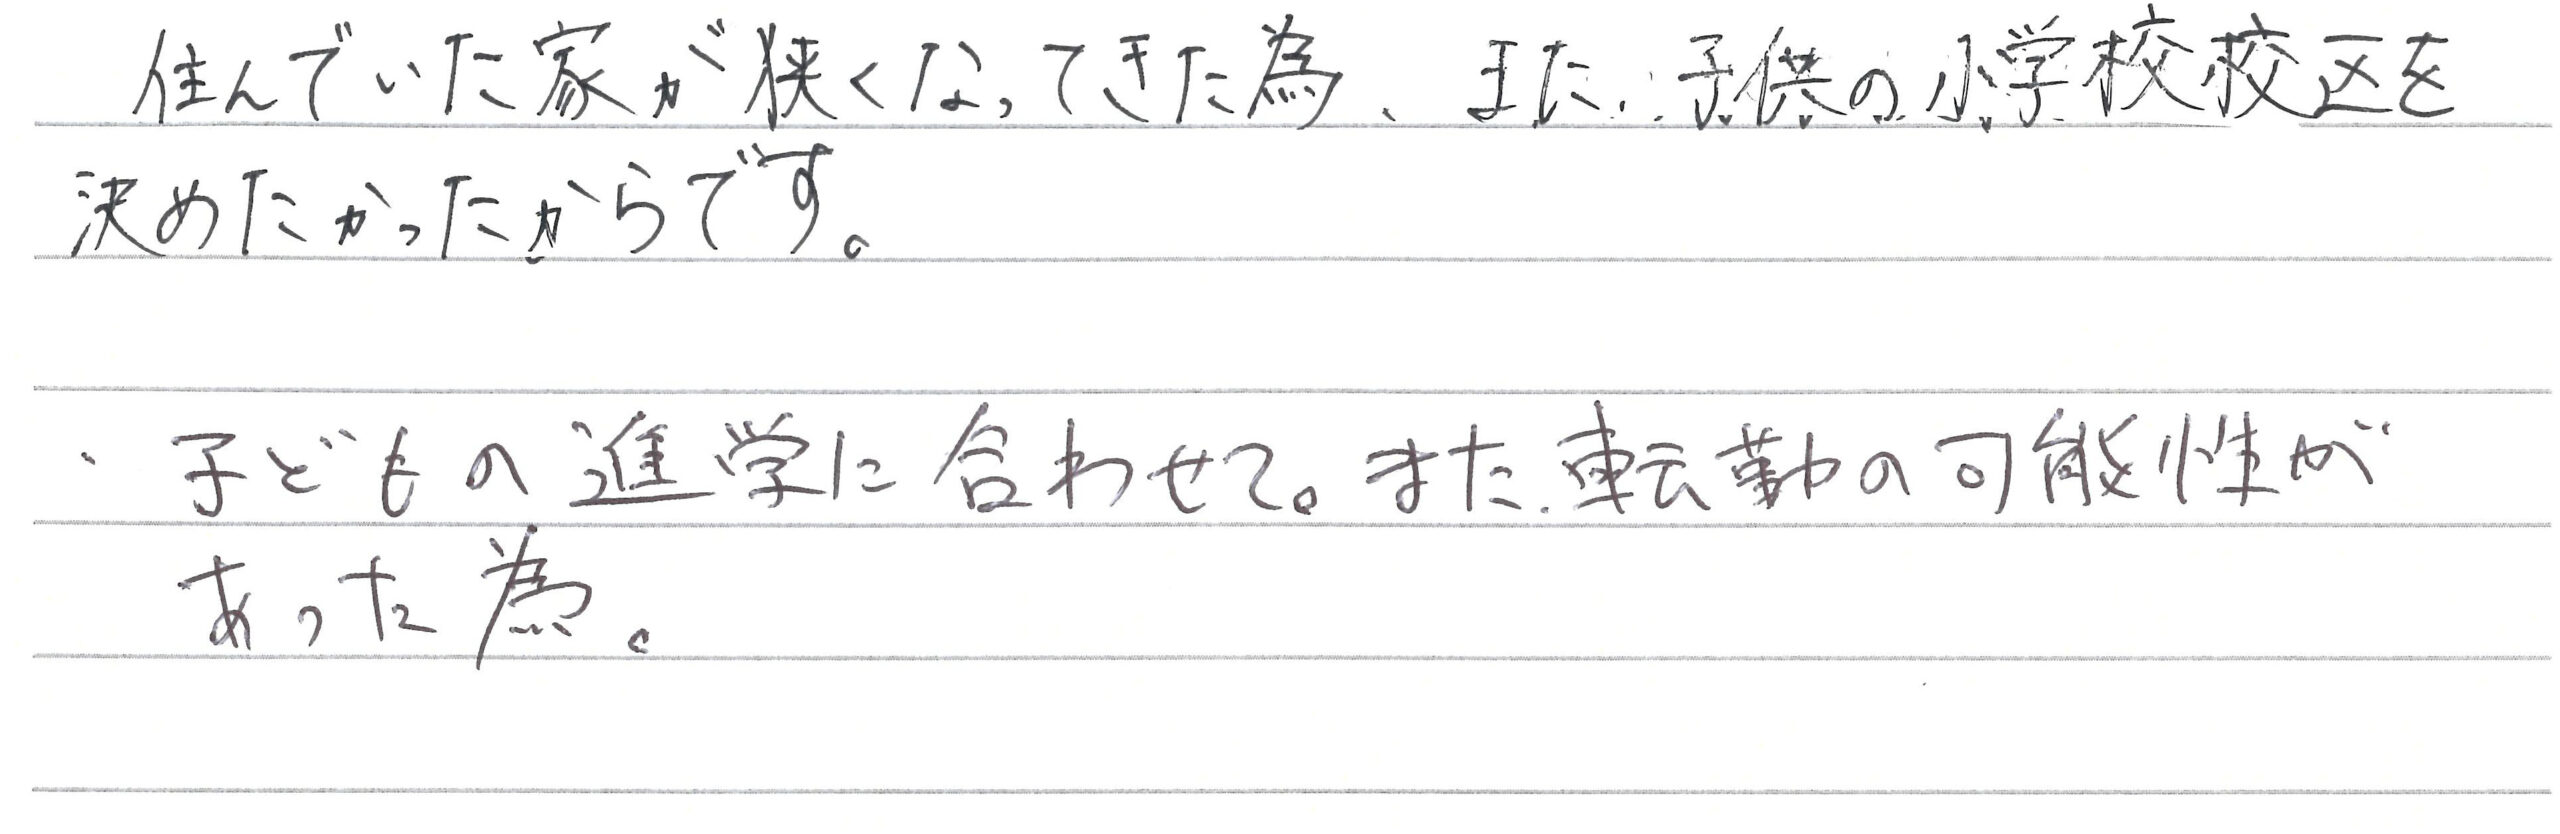 住んでいた家が狭くなってきた為、また、子供の小学校校区を
決めたかったからです。
・子どもの進学に合わせて。また、転勤の可能性が
あった為。